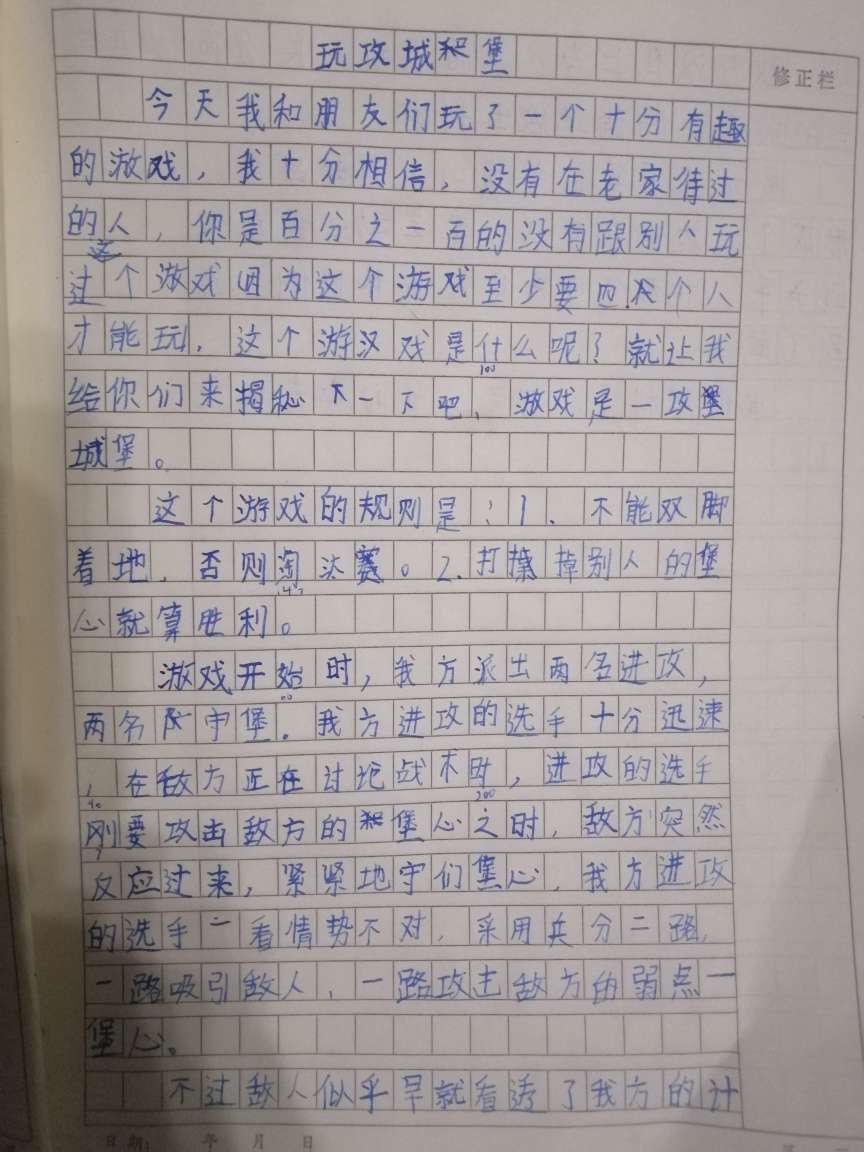 玩攻城堡
修正栏
今天我和朋友们玩了一个十分有趣
的游戏，我十分相信，没有在老家待过
的人，你是百分之一百的没有跟别人玩
过这个游戏因为这个游戏至少要四个人
才能玩，这个游戏是什么呢？就让我
给你们来揭秘一下吧、游戏是一攻
城堡。
100
这个游戏的规则是：1、不能双脚
着地，否则淘汰赛。2.打掉别人的堡
心就算胜利。
游戏开始时，我方派出两名进攻，
两名守堡．我方进攻的选手十分迅速
，在敌方正在讨论战术时，进攻的选手
200
刚要攻击敌方的堡心之时，敌方突然
反应过来，紧紧地守们堡心，我方进攻
的选手一看情势不对，采用兵分二路，
一路吸引敌人，一路攻击敌方的弱点一
堡心。
不过敌人似乎早就看透了我方的计
日期： 年 月 日